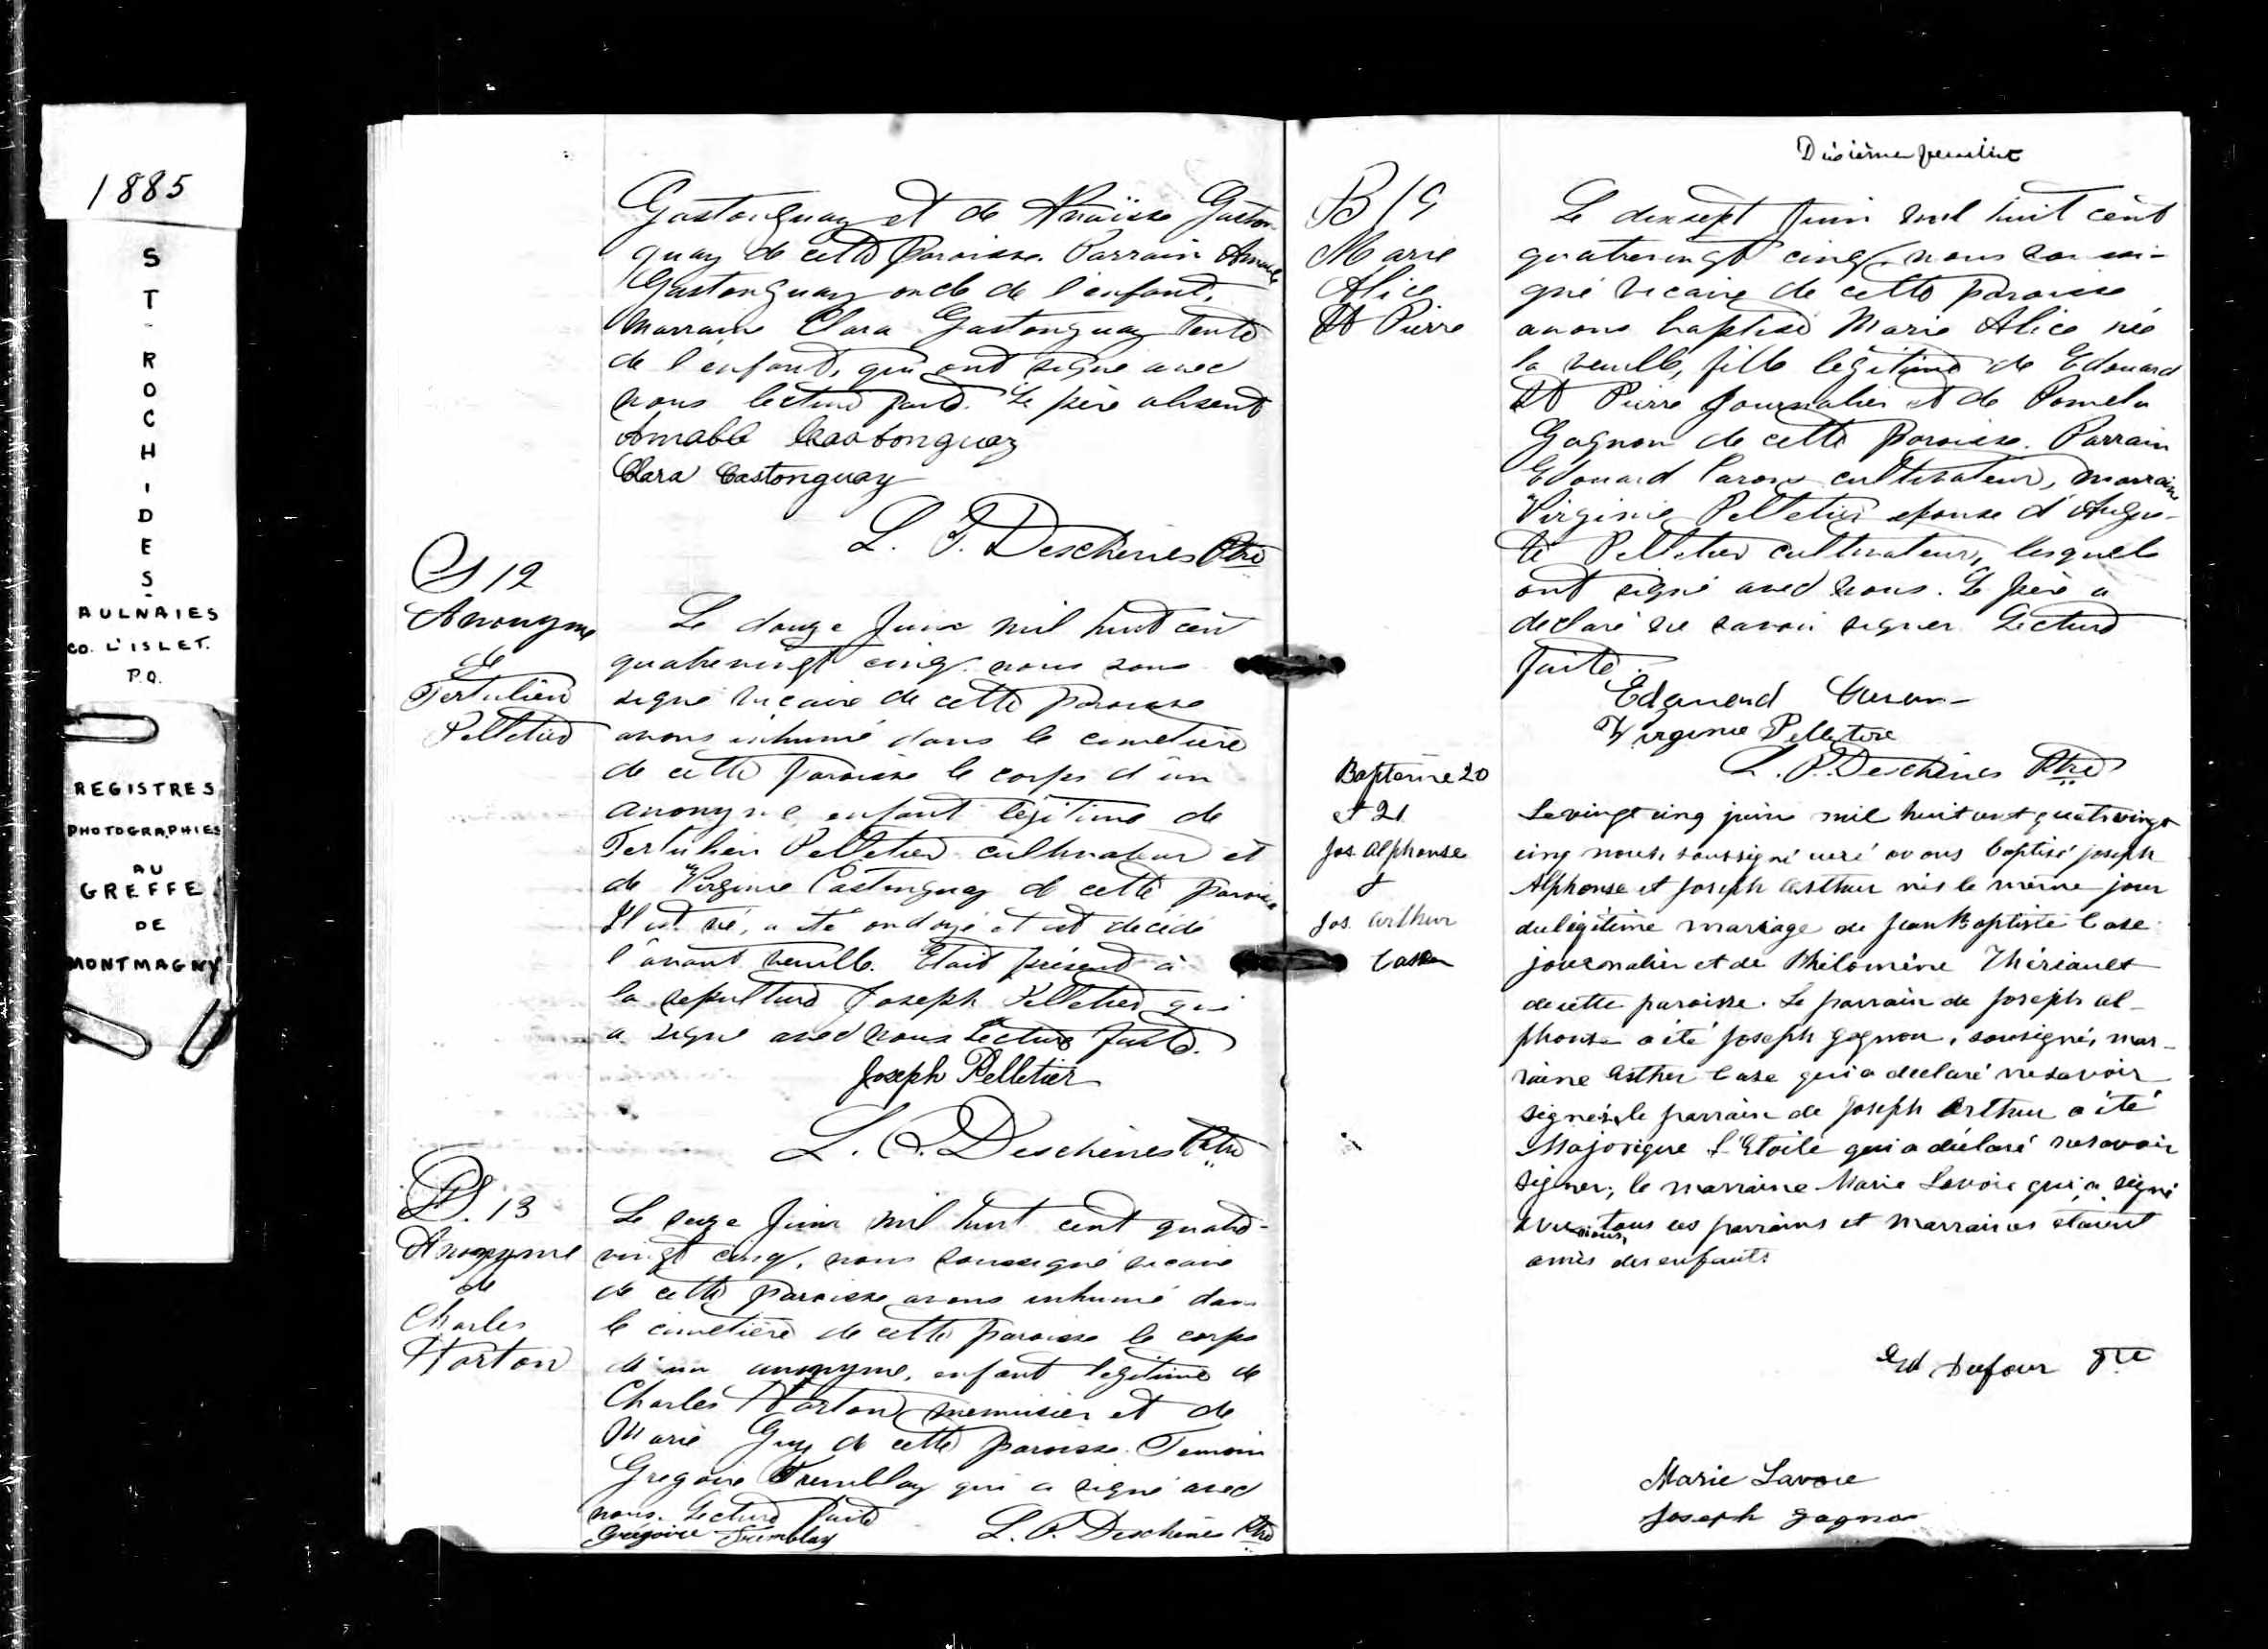 1885
ST-ROCH-DES-
AULNAIES
CO. L'ISLET.
P.Q.
REGISTRES
PHOTOGRAPHIES
AU
GREFFE
DE
MONTMAGNY
Gastonguay et de Anaïsse Gaston-
guay de cette paroisse. Parrain Amable
Gastonguay oncle de l'enfant,
marraine Clara Gastonguay tente
de l'enfant, qui ont signé avec
nous lecture faite. Le père absent
Amable Castonguay
Clara Castonguay
L. P. Deschênes Ptre
S 12
Anonyme
de
Tertulien
Pelletier
Le douze Juin mil huit cent
quatrevingt cinq nous sous
signé vicaire de cette paroisse
avons inhumé dans le cimetière
de cette paroisse le corps d'un
anonyme enfant légitime de
Tertulien Pelletier cultivateur et
de Virginie Castonguay de cette paroisse
Il est né, a été ondoyé et est décédé
l'avant veille. Etait présent à
la sepulture Joseph Pelletier qui
a signé avec nous Lecture faite.
Joseph Pelletier
L. P. Deschênes Ptre
S. 13
Anonyme
de
Charles
Le seize Juin mil huit cent quatre-
vingt cinq, nous soussigné vicaire
de cette paroisse avons inhumé dans
le cimetière de cette paroisse le corps
d'un anonyme, enfant legitime de
Charles menuisier et de
Marie Guy de cette paroisse. Temoin
Gregoire Tremblay qui a signé avec
nous. Lecture faite
Grégoire Tremblay L. P. Deschênes Ptre
Dixième feuillet
B 19
Marie
Alice
St Pierre
Le dixsept Juin mil huit cent
quatrevingt cinq nous soussi-
gné vicaire de cette paroisse
avons baptisé Marie Alice née
la veille, fille légitime de Edouard
St Pierre Journalier et de Pamela
Gagnon de cette paroisse. Parrain
Edouard Caron cultivateur, marraine
Virginie Pelletier epouse d'Augus-
te Pelletier cultivateur, lesquels
ont signé avec nous. Le père a
declaré ne savoir signer Lecture
faite.
Edouard Caron
Virginie Pelletier
L. P. Deschênes Ptre
Baptême 20
et 21
Jos. Alphonse
&
Jos. Arthur
Le vingt cinq juin mil huit cent quatrevingt
cinq nous, soussigné curé avons baptisé Joseph
Alphonse et Joseph Arthur nés le même jour
du légitime mariage de Jean Baptiste Case
journalier et de Philomène Thériault
de cette paroisse. Le parrain de Joseph Al-
phonse a été Joseph Gagnon, soussigné, mar-
raine Esther Case qui a declaré ne savoir
signer, le parrain de Joseph Arthur a été
Majorique L'Etoile qui a déclaré ne savoir
signer, la marraine Marie Lavoie qui a signé
avec nous, tous ces parrains et marraines étaient
amis des enfants
Ed Dufour Ptre
Marie Lavoie
Joseph Gagnon